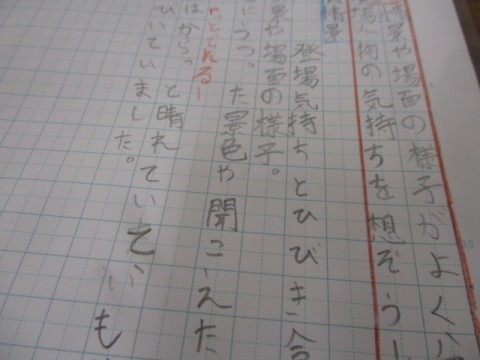 情景や場面の様子がよく
場人物の気持ちを想ぞうし
情景
登場気持ちとひびき合
景や場面の様子。
にうつった景色や聞こえた
とれる
はからっと晴れていて、
ひいていました。
も